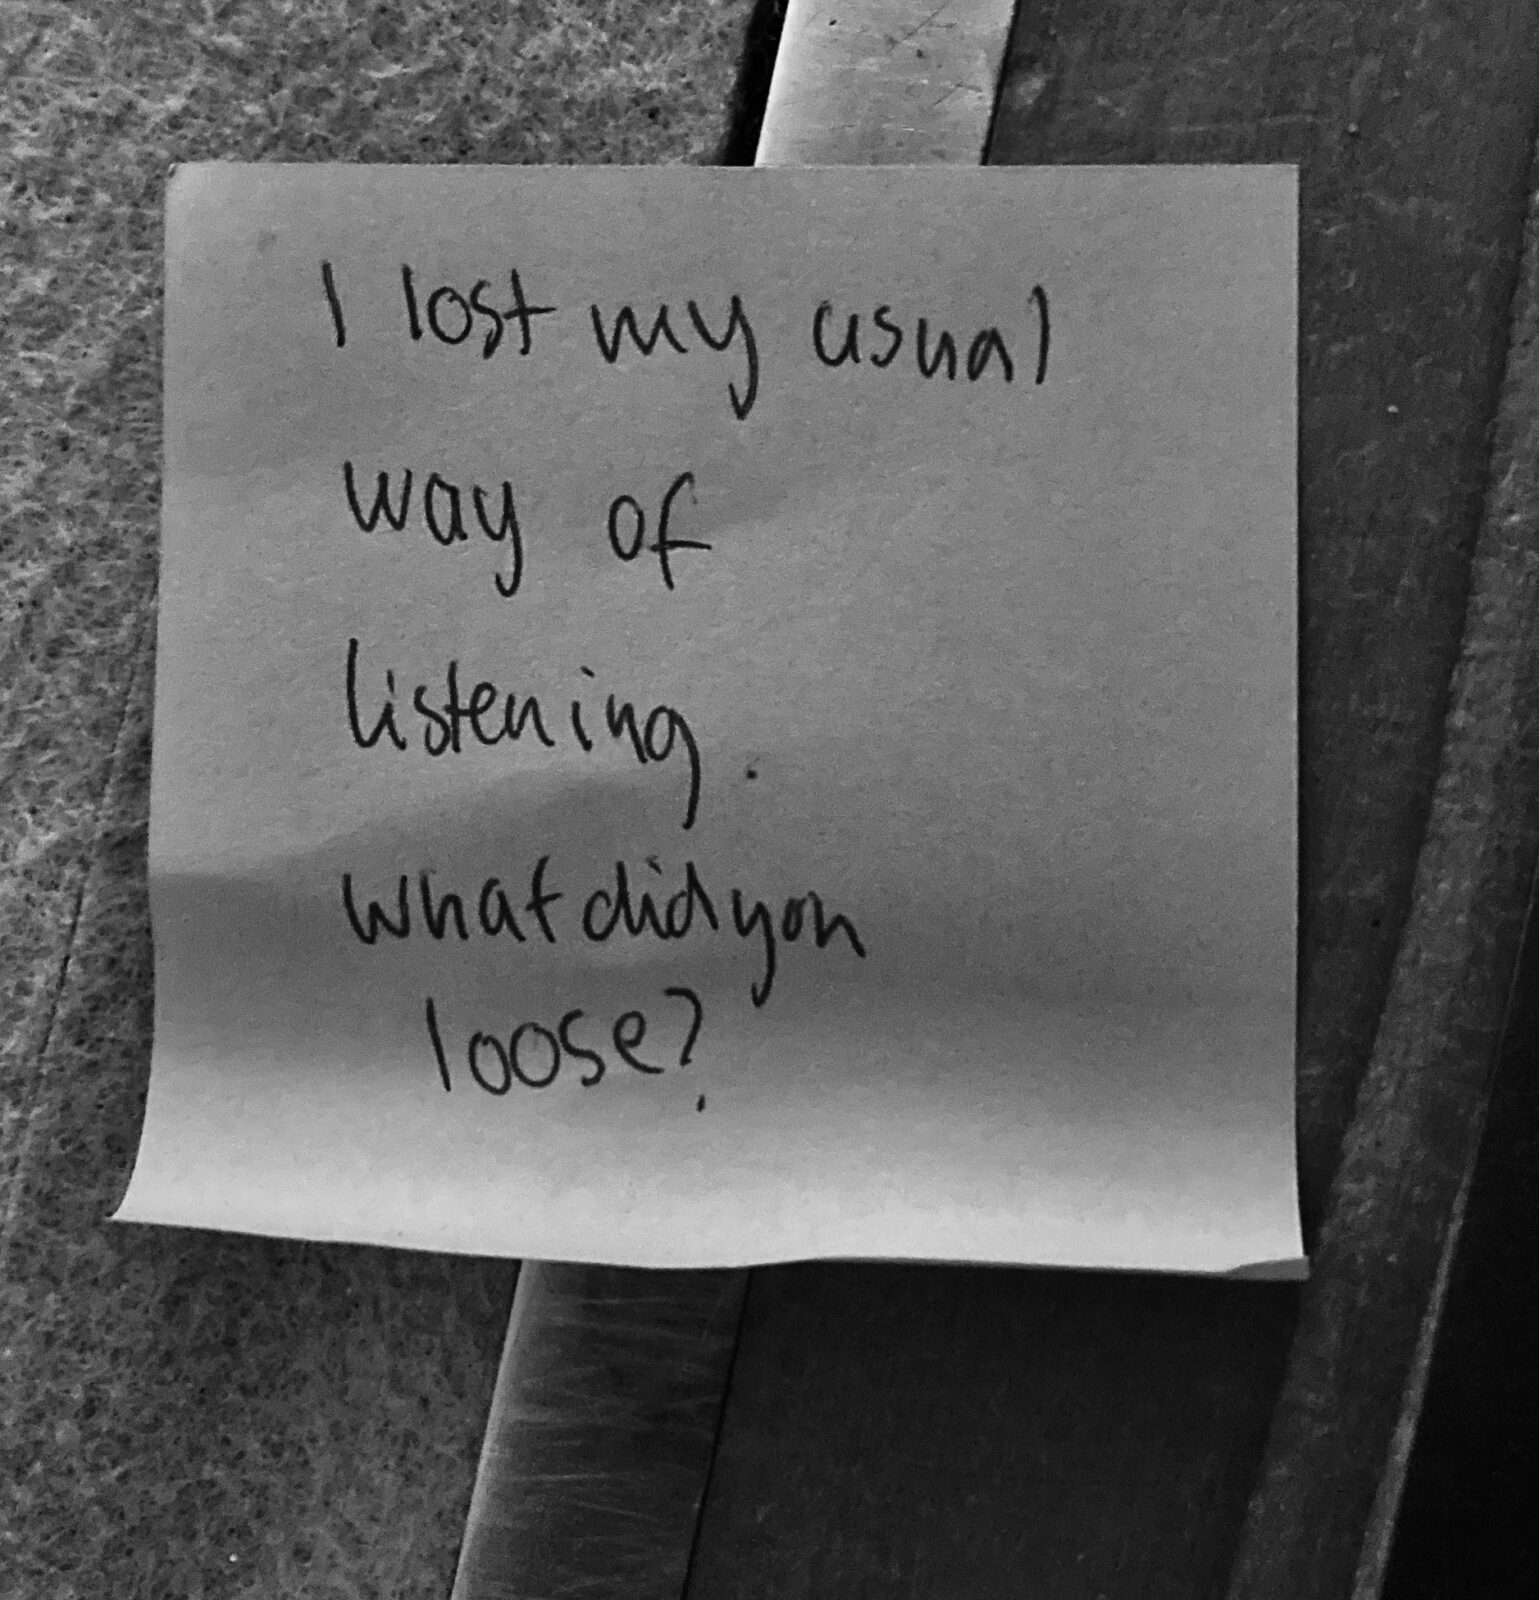 I lost my usual
way of
listening.
what did you
loose?